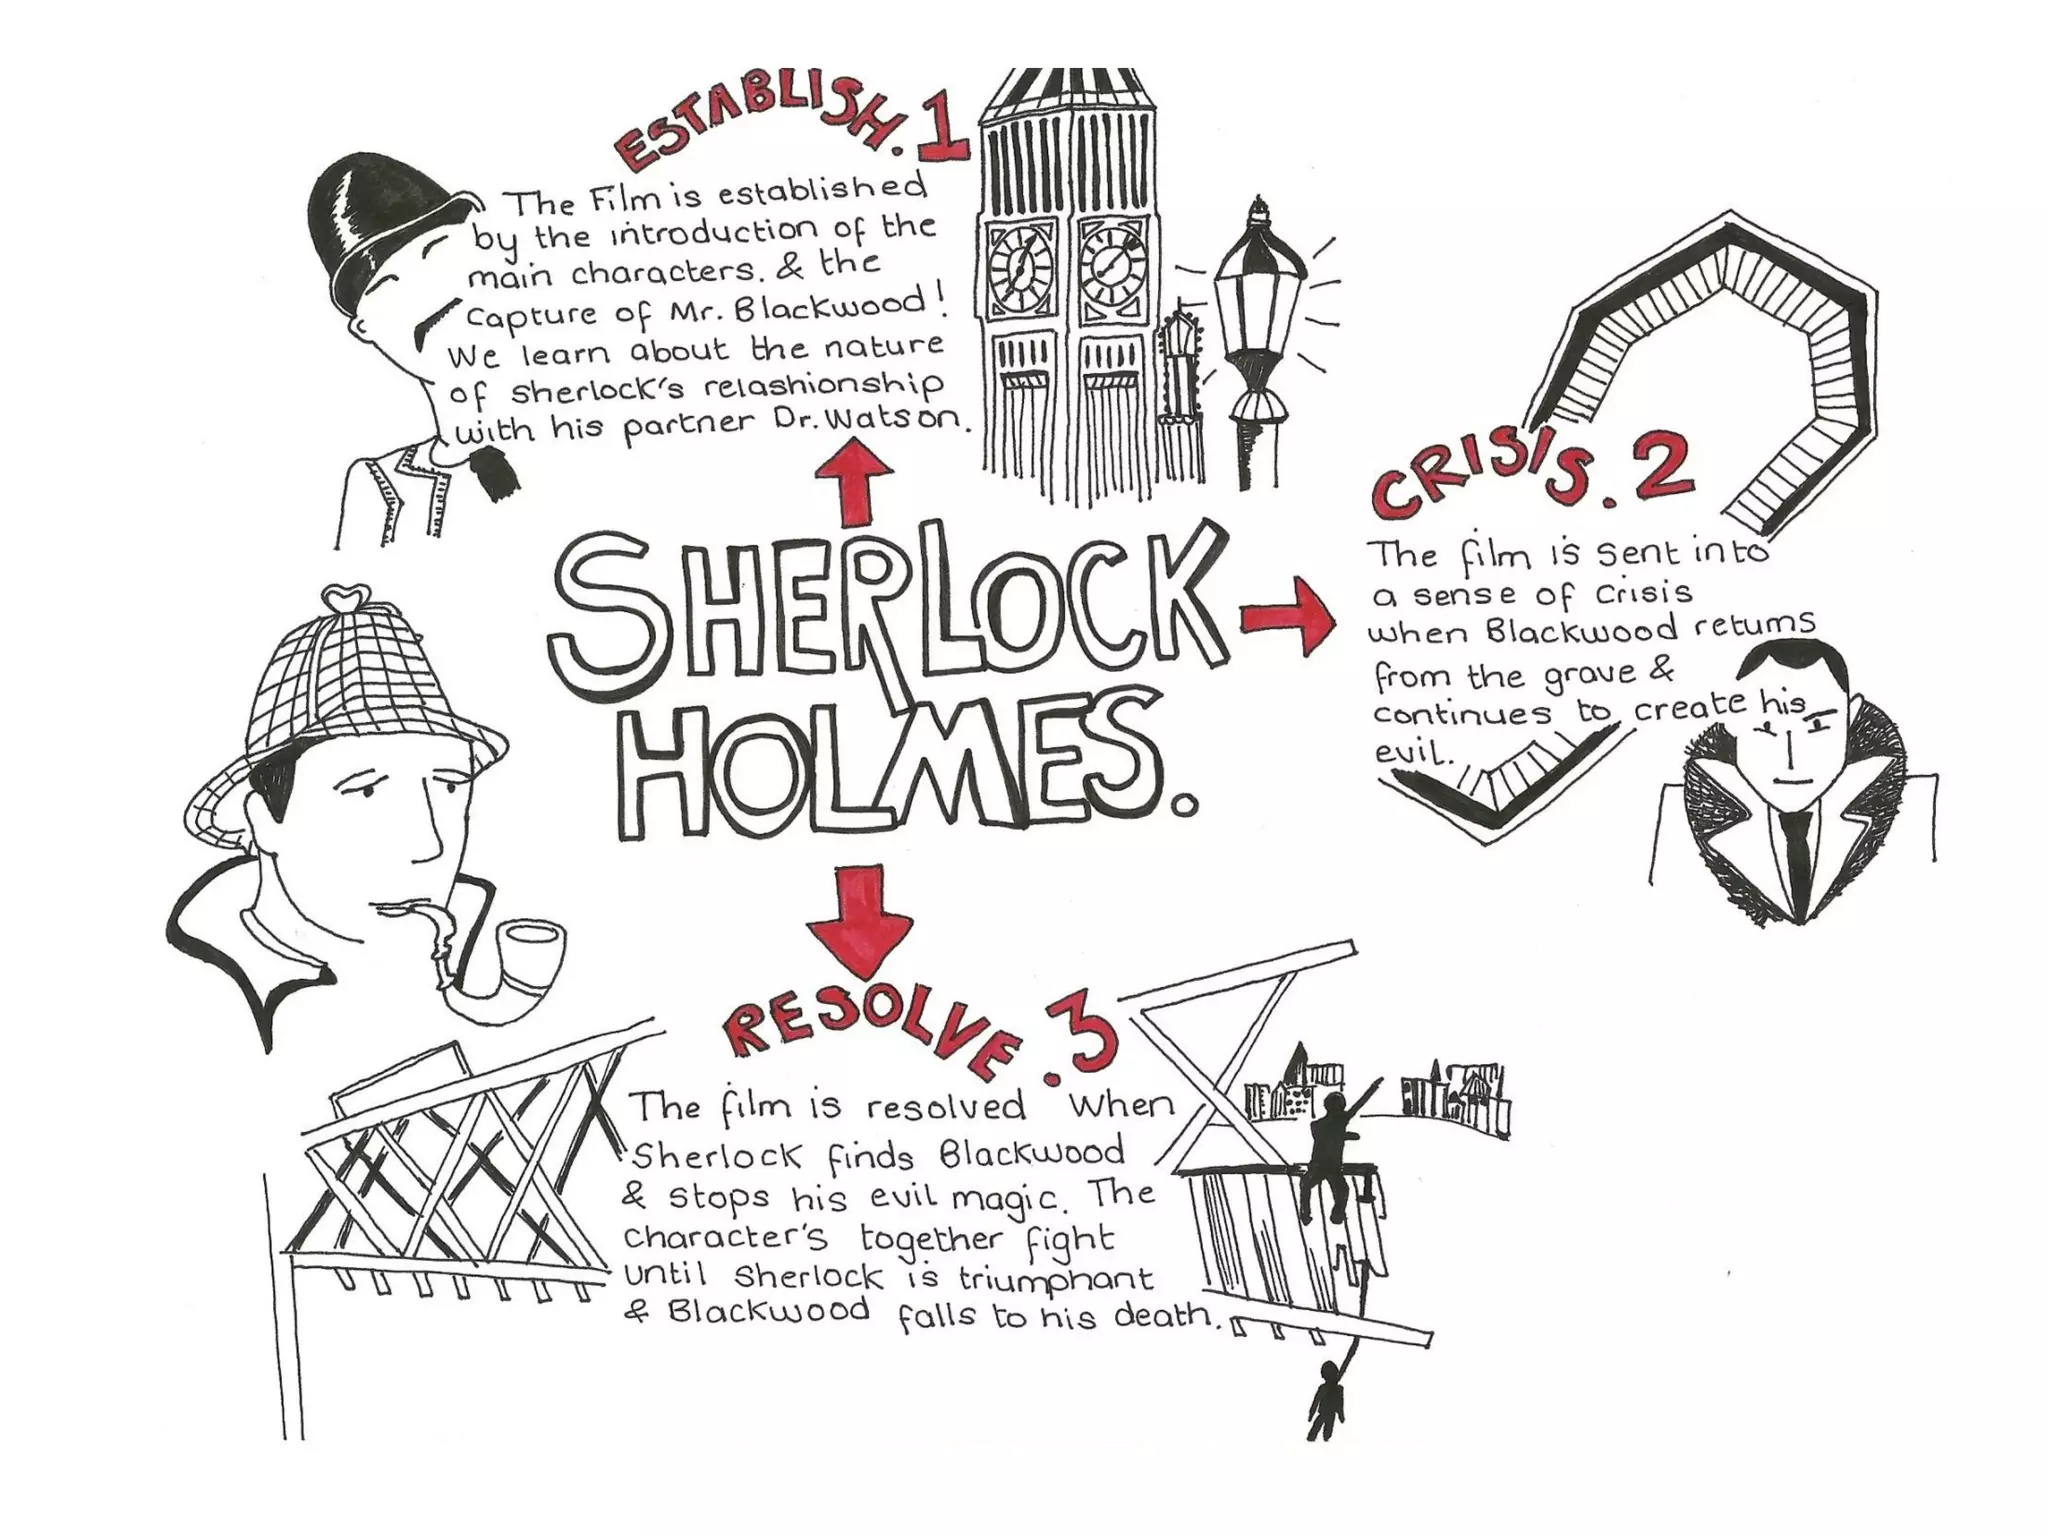 ESTABLISH. 1
The Film is established
by the introduction of the
main characters. & the
capture of Mr. Blackwood!
We learn about the nature
of sherlock's relashionship
with his partner Dr. Watson.
SHERLOCK
HOLMES.
CRISIS. 2
The film is sent into
a sense of crisis
when Blackwood returns
from the grave &
continues to create his
evil.
RESOLVE .3
The film is resolved when
Sherlock finds Blackwood
& stops his evil magic. The
character's together fight
until Sherlock is triumphant
& Blackwood falls to his death.